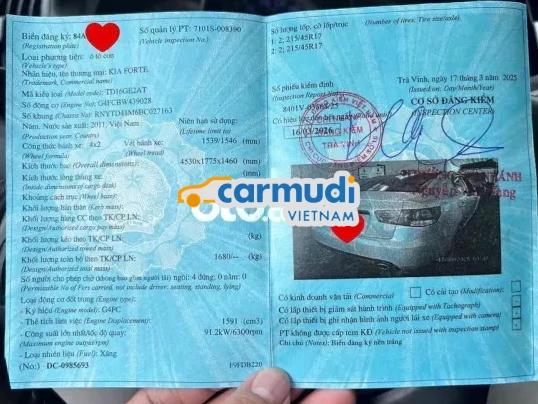 Biển đăng ký: 84A
(Registration plate)
Số quản lý PT: 7101S-008390
(Vehicle inspection No.)
Loại phương tiện: ô tô con
(Vehicle's type)
Nhãn hiệu, tên thương mại: KIA FORTE
(Trademark, Commercial name)
Mã kiểu loại (Model code): TD16GE2AT
Số động cơ (Engine No): G4FCBW439028
Số khung (Chassis No): RNYTD41M6BC027163
Năm, Nước sản xuất: 2011, Việt Nam
(Production year, Country)
Niên hạn sử dụng:
(Lifetime limit to)
Công thức bánh xe: 4x2
(Wheel formula)
Vết bánh xe: 1539/1546 (mm)
(Wheel tread)
Kích thước bao (Overall dimensions): 4530x1775x1460 (mm)
Kích thước lòng thùng xe:
(Inside dimensions of cargo desk)
(mm)
Khoảng cách trục (Wheel base)
Khối lượng bản thân (Kerb mass)
Khối lượng hàng CC theo TK/CP LN:
(Design/Authorized cargo pay mass)
Khối lượng kéo theo TK/CP LN: (kg)
(Design/Authorized towed mass)
Khối lượng toàn bộ theo TK/CP LN: 1680/-- (kg)
(Design/Authorized total mass)
Số người cho phép chở (không bao gồm người lái) ngồi: 4 đứng: 0 nằm: 0
(Permissible No of Pers carried, not include driver: seating, standing, lying)
Loại động cơ đốt trong (Engine type):
- Ký hiệu (Engine model): G4FC
- Thể tích làm việc (Engine Displacement): 1591 (cm3)
- Công suất lớn nhất/tốc độ quay: 91.2kW/6300rpm
(Maximum engine output/rpm)
- Loại nhiên liệu (Fuel): Xăng
(No) : DC-0985693
19FDB220
Số lượng lốp, cỡ lốp/trục
(Number of tires; Tire size/axle)
1: 2; 215/45R17
2: 2; 215/45R17
Số phiếu kiểm định
(Inspection Report No)
8401V-03868/25
Có hiệu lực đến hết ngày
16/03/2026
Trà Vinh, ngày 17 tháng 3 năm 2025
(Issued on: Day/Month/Year)
CƠ SỞ ĐĂNG KIỂM
(INSPECTION CENTER)
TRÀ VINH
carmudi
VIETNAM
Có kinh doanh vận tải (Commercial)
Có cải tạo (Modification):
Có lắp thiết bị giám sát hành trình (Equipped with Tachograph)
Có lắp thiết bị ghi nhận hình ảnh người lái xe (Equipped with camera)
PT không được cấp tem KĐ (Vehicle not issued with inspection stamp)
Ghi chú (Notes): Biển đăng ký nền trắng